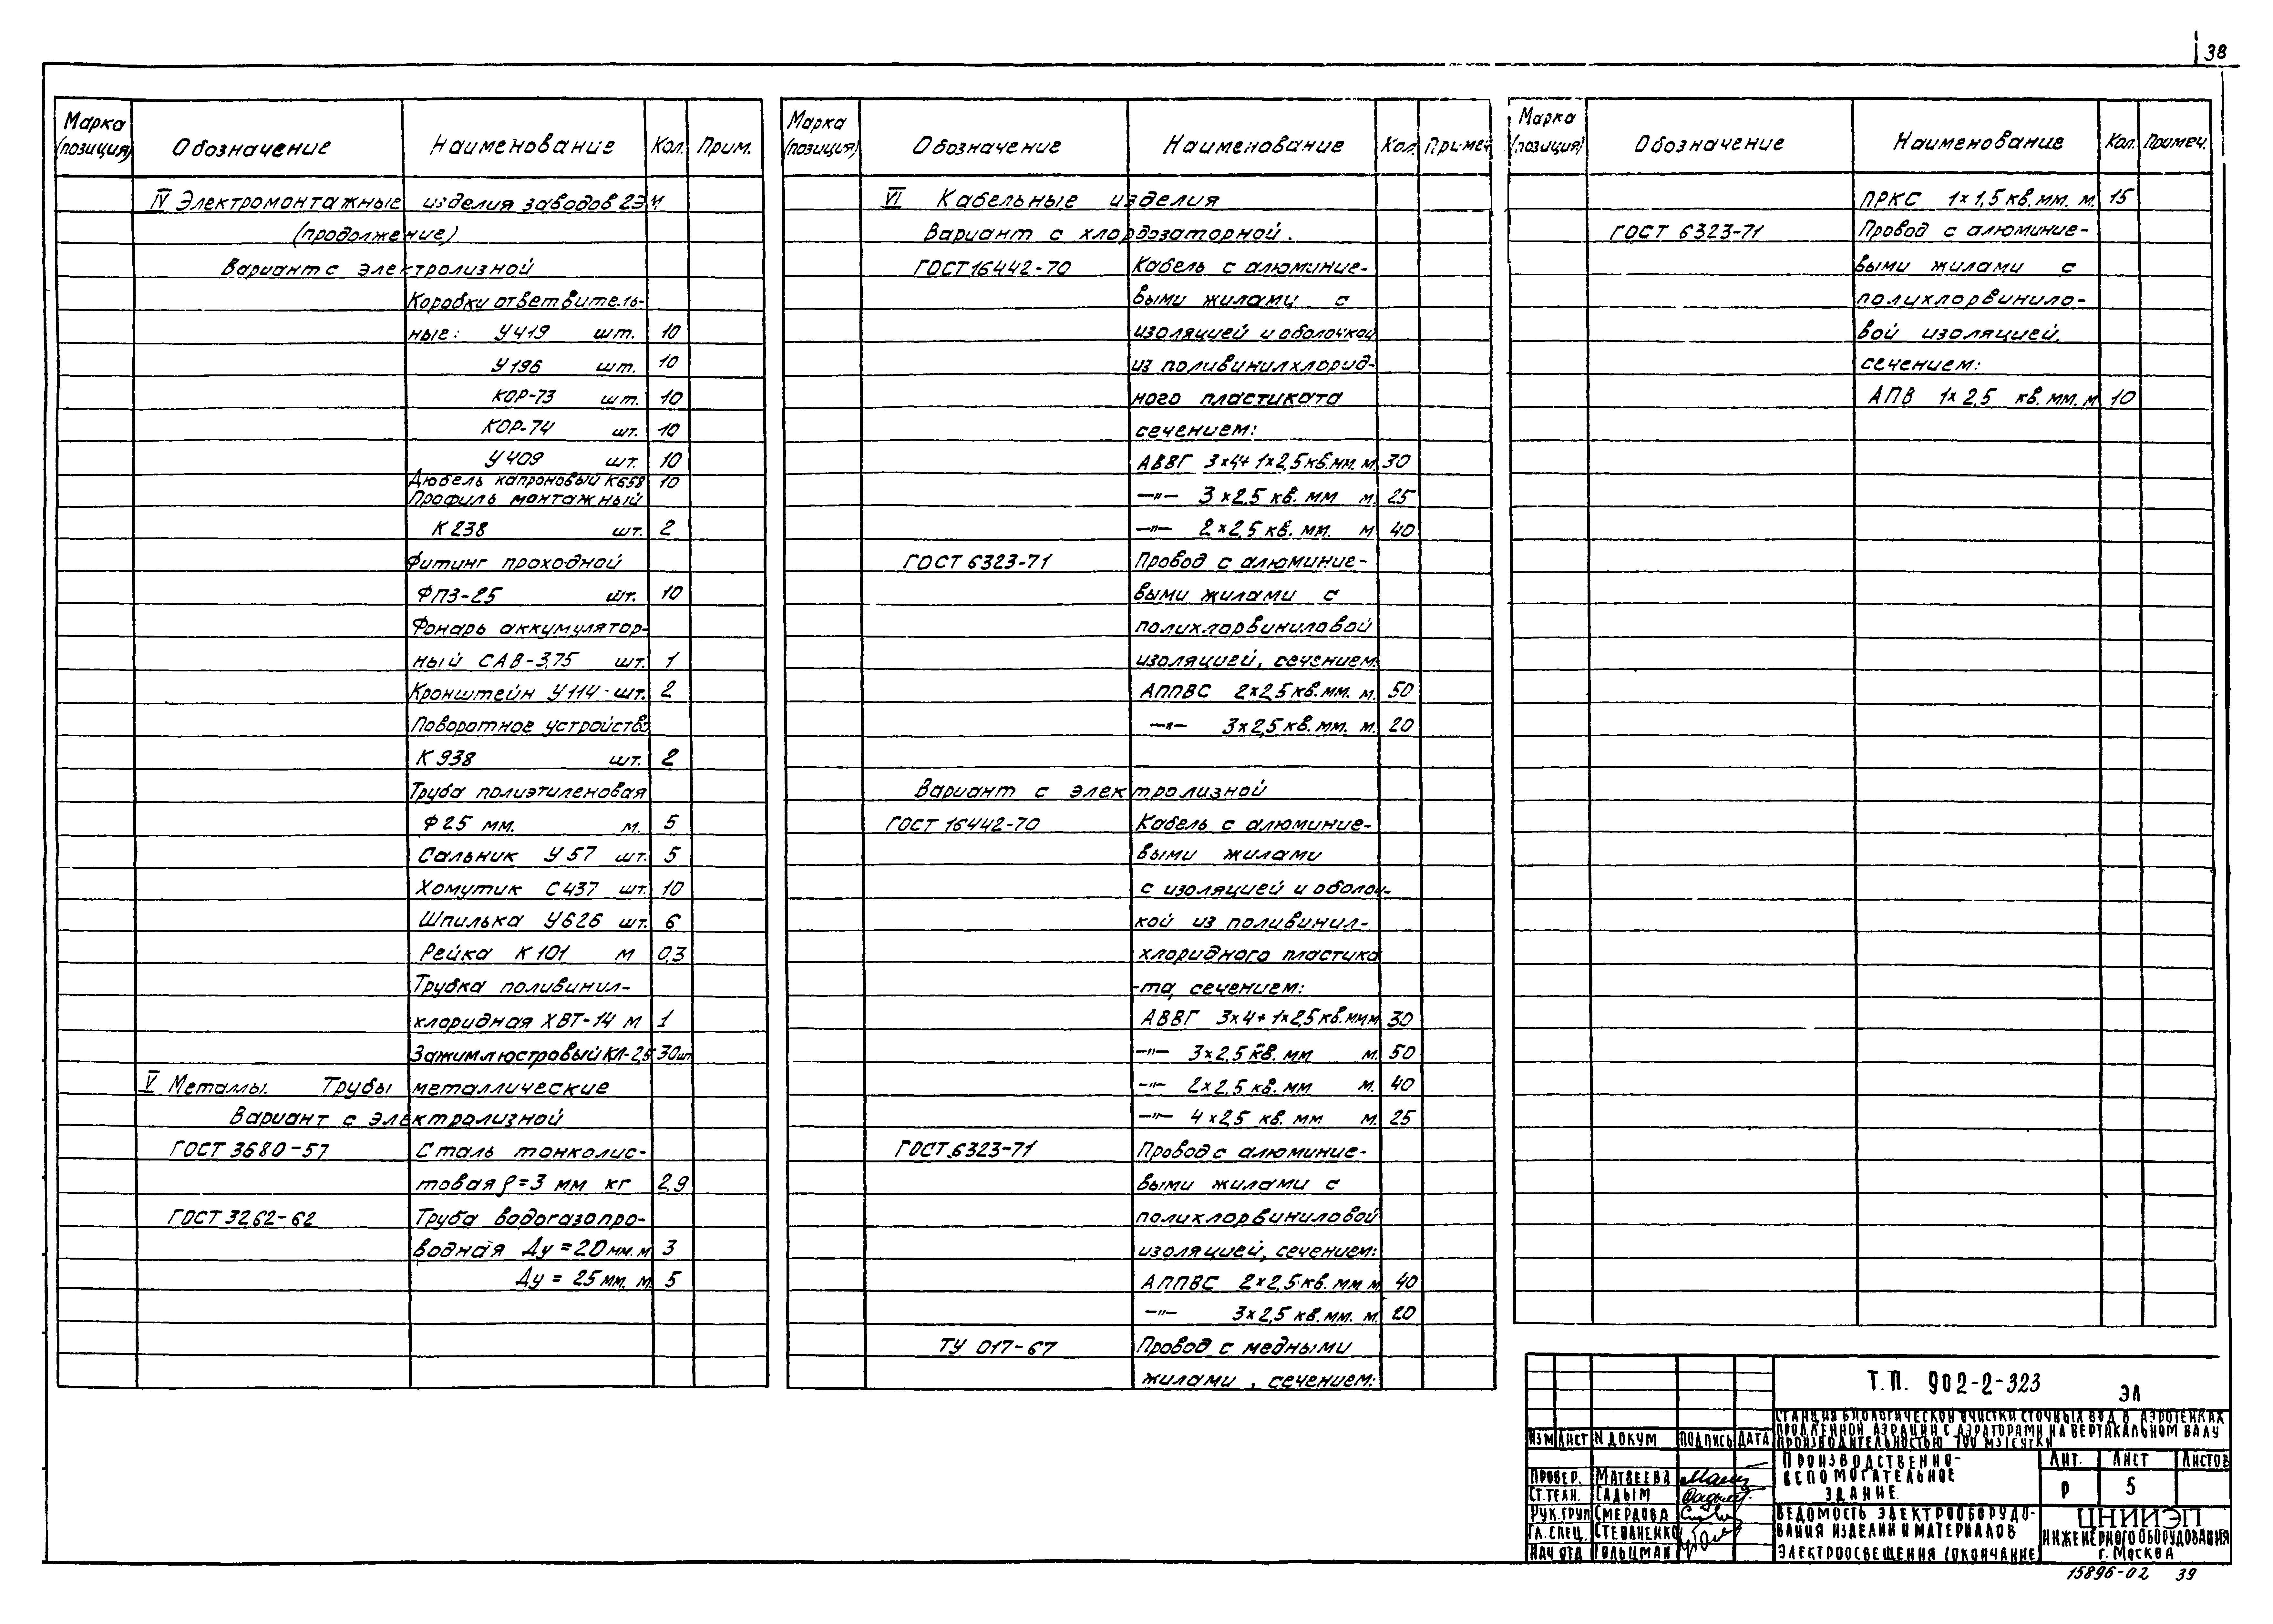 38
Марка (позиция) Обозначение Наименование Кол. Прим.
IV Электромонтажные изделия заводов ГЭМ
(продолжение)
Вариант с электролизной
Коробки ответвитель-
ные: У419 шт. 10
У196 шт. 10
КОР-73 шт. 10
КОР-74 шт. 10
У409 шт. 10
Дюбель капроновый К658 10
Профиль монтажный
К238 шт. 2
Фитинг проходной
ФПЗ-25 шт. 10
Фонарь аккумулятор-
ный САВ-3,75 шт. 1
Кронштейн У114 шт. 2
Поворотное устройство
К938 шт. 2
Труба полиэтиленовая
Ф25 мм. м. 5
Сальник У57 шт. 5
Хомутик С437 шт. 10
Шпилька У626 шт. 6
Рейка К101 м 0,3
Трубка поливинил-
хлоридная ХВТ-14 м 1
Зажим люстровый КЛ-2,5 30шт
V Металлы. Трубы металлические
Вариант с электролизной
ГОСТ 3680-57 Сталь тонколис-
товая ρ=3 мм кг 2,9
ГОСТ 3262-62 Труба водогазопро-
водная Ду=20мм. м 3
Ду = 25мм. м. 5
Марка (позиция) Обозначение Наименование Кол. Примеч
VI Кабельные изделия
Вариант с хлордозаторной.
ГОСТ 16442-70 Кабель с алюминие-
выми жилами с
изоляцией и оболочкой
из поливинилхлорид-
ного пластиката
сечением:
АВВГ 3×4+1×2,5кв.мм. м. 30
—"— 3×2,5 кв. мм м. 25
—"— 2×2,5 кв. мм. м 40
ГОСТ 6323-71 Провод с алюминие-
выми жилами с
полихлорвиниловой
изоляцией, сечением:
АППВС 2×2,5кв.мм. м. 50
—"— 3×2,5кв.мм. м. 20
Вариант с электролизной
ГОСТ 16442-70 Кабель с алюминие-
выми жилами
с изоляцией и оболоч-
кой из поливинил-
хлоридного пластика
-та, сечением:
АВВГ 3×4+1×2,5кв.мм м 30
—"— 3×2,5 кв. мм м. 50
—"— 2×2,5 кв. мм м. 40
—"— 4×2,5 кв. мм м. 25
ГОСТ.6323-71 Провод с алюминие-
выми жилами с
полихлорвиниловой
изоляцией, сечением:
АППВС 2×2,5 кв. мм м. 40
—"— 3×2,5 кв. мм. м. 20
ТУ 017-67 Провод с медными
жилами, сечением:
Марка (позиция) Обозначение Наименование Кол. Примеч.
ПРКС 1×1,5 кв. мм. м. 15
ГОСТ 6323-71 Провод с алюминие-
выми жилами с
полихлорвинило-
вой изоляцией,
сечением:
АПВ 1×2,5 кв. мм. м 10
Т.П. 902-2-323 ЭЛ
СТАНЦИЯ БИОЛОГИЧЕСКОЙ ОЧИСТКИ СТОЧНЫХ ВОД В АЭРОТЕНКАХ
ПРОДЛЕННОЙ АЭРАЦИИ С АЭРАТОРАМИ НА ВЕРТИКАЛЬНОМ ВАЛУ
ПРОИЗВОДИТЕЛЬНОСТЬЮ 700 М3/СУТКИ
ИЗМ ЛИСТ N ДОКУМ ПОДПИСЬ ДАТА
ПРОВЕР. МАТВЕЕВА
СТ.ТЕХН. САДЫМ
РУК.ГРУП СМЕРДОВА
ГЛ.СПЕЦ. СТЕПАНЕНКО
НАЧ ОТД ГОЛЬЦМАН
ПРОИЗВОДСТВЕННО-
ВСПОМОГАТЕЛЬНОЕ
ЗДАНИЕ.
ЛИТ. ЛИСТ ЛИСТОВ
Р 5
ВЕДОМОСТЬ ЭЛЕКТРООБОРУДО-
ВАНИЯ ИЗДЕЛИЙ И МАТЕРИАЛОВ
ЭЛЕКТРООСВЕЩЕНИЯ (ОКОНЧАНИЕ
ЦНИИЭП
ИНЖЕНЕРНОГО ОБОРУДОВАНИЯ
г. МОСКВА
15896-02 39